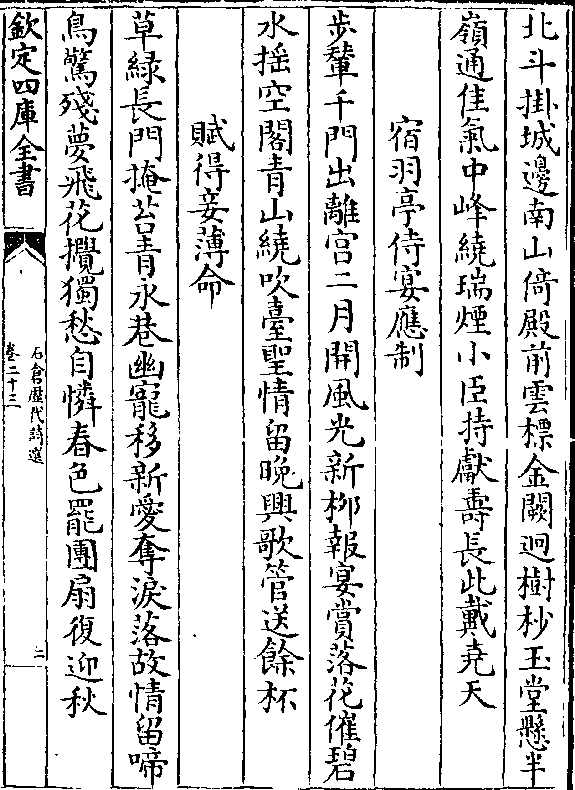 北斗掛城邊南山倚殿前雲標金闕迥樹杪玉堂懸半
嶺通佳氣中峰繞瑞煙小臣持獻壽長此戴堯天
宿羽亭侍宴應制
步輦千門出離宮二月開風光新柳報宴賞落花催碧
水揺空閣青山繞吹臺聖情留晚興歌管送餘杯
賦得妾薄命
草緑長門掩苔青永巷幽寵移新愛奪淚落故情留啼
鳥驚殘夢飛花攪獨愁自憐春色罷團扇復迎秋
欽定四庫全書
石倉歴代詩選
卷二十三
二